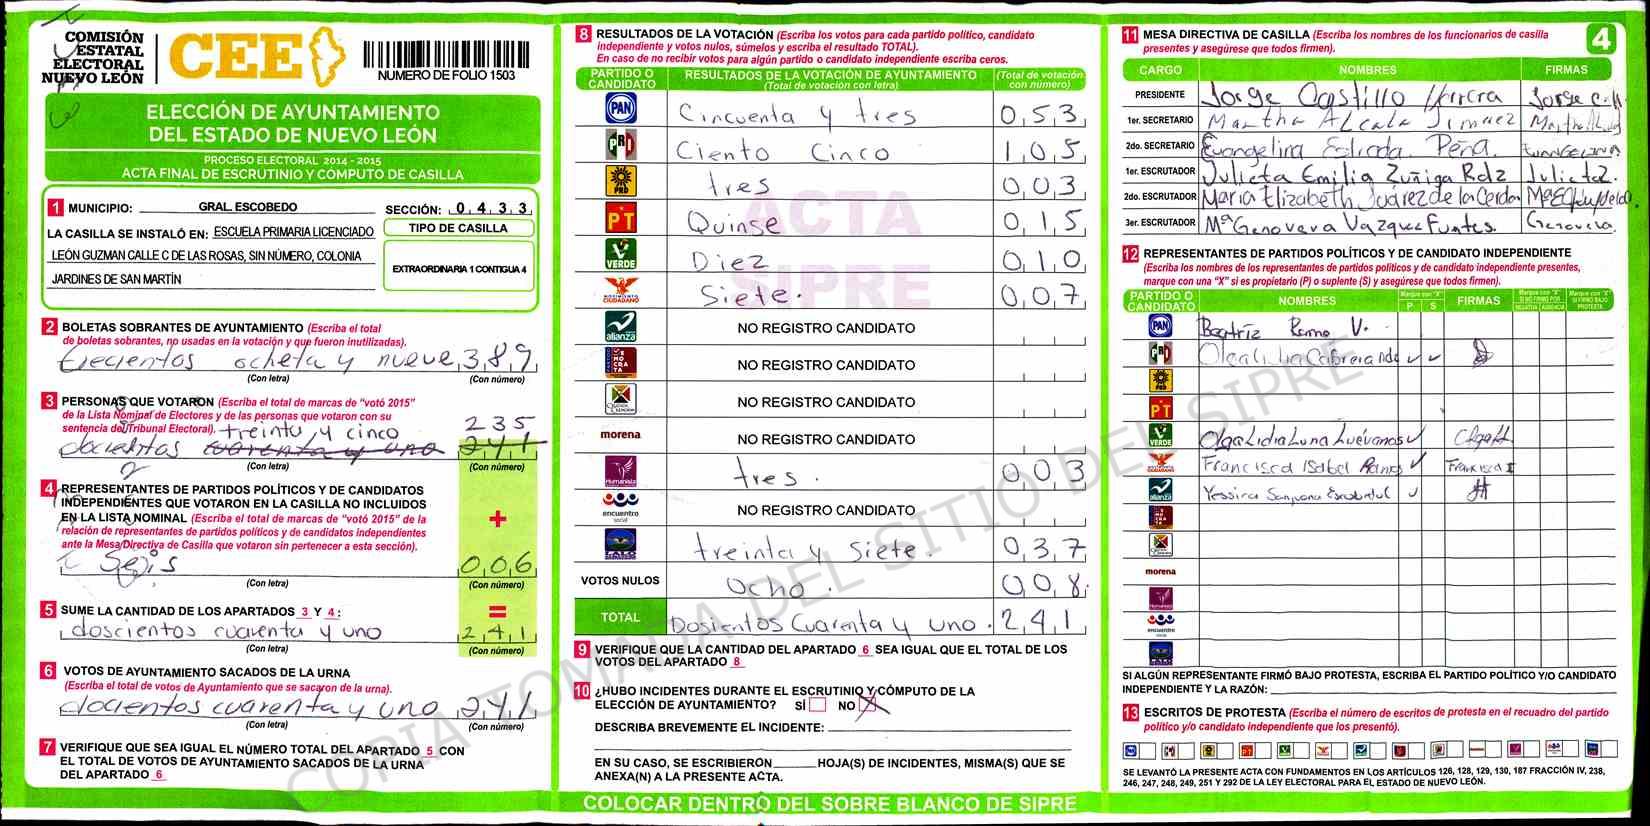 COMISIÓN
ESTATAL
ELECTORAL
NUEVO LEÓN
CEE
NUMERO DE FOLIO 1503
ELECCIÓN DE AYUNTAMIENTO
DEL ESTADO DE NUEVO LEÓN
PROCESO ELECTORAL 2014 - 2015
ACTA FINAL DE ESCRUTINIO Y CÓMPUTO DE CASILLA
1 MUNICIPIO: GRAL. ESCOBEDO SECCIÓN: 0 4 3 3
LA CASILLA SE INSTALÓ EN: ESCUELA PRIMARIA LICENCIADO
LEÓN GUZMAN CALLE C DE LAS ROSAS, SIN NÚMERO, COLONIA
JARDINES DE SAN MARTÍN
TIPO DE CASILLA
EXTRAORDINARIA 1 CONTIGUA 4
2 BOLETAS SOBRANTES DE AYUNTAMIENTO (Escriba el total
de boletas sobrantes, no usadas en la votación y que fueron inutilizadas).
trecientos ocheta y nueve 3 8 9
(Con letra) (Con número)
3 PERSONAS QUE VOTARON (Escriba el total de marcas de "votó 2015"
de la Lista Nominal de Electores y de las personas que votaron con su
sentencia del Tribunal Electoral). treinta y cinco 2 3 5
docientos cuarenta y uno 2 4 1
(Con letra) (Con número)
4 REPRESENTANTES DE PARTIDOS POLÍTICOS Y DE CANDIDATOS
INDEPENDIENTES QUE VOTARON EN LA CASILLA NO INCLUIDOS
EN LA LISTA NOMINAL (Escriba el total de marcas de "votó 2015" de la
relación de representantes de partidos políticos y de candidatos independientes
ante la Mesa Directiva de Casilla que votaron sin pertenecer a esta sección).
+
Seis 0 0 6
(Con letra) (Con número)
5 SUME LA CANTIDAD DE LOS APARTADOS 3 Y 4: =
doscientos cuarenta y uno 2 4 1
(Con letra) (Con número)
6 VOTOS DE AYUNTAMIENTO SACADOS DE LA URNA
(Escriba el total de votos de Ayuntamiento que se sacaron de la urna).
docientos cuarenta y uno 2 4 1
(Con letra) (Con número)
7 VERIFIQUE QUE SEA IGUAL EL NÚMERO TOTAL DEL APARTADO 5 CON
EL TOTAL DE VOTOS DE AYUNTAMIENTO SACADOS DE LA URNA
DEL APARTADO 6
8 RESULTADOS DE LA VOTACIÓN (Escriba los votos para cada partido político, candidato
independiente y votos nulos, súmelos y escriba el resultado TOTAL).
En caso de no recibir votos para algún partido o candidato independiente escriba ceros.
PARTIDO O CANDIDATO RESULTADOS DE LA VOTACIÓN DE AYUNTAMIENTO (Total de votación con letra) (Total de votación con número)
PAN Cincuenta y tres 0 5 3
PRD Ciento Cinco 1 0 5
PRD tres 0 0 3
PT Quinse 0 1 5
VERDE Diez 0 1 0
MOVIMIENTO CIUDADANO Siete. 0 0 7
alianza NO REGISTRO CANDIDATO
DEMOCRATA NO REGISTRO CANDIDATO
NO REGISTRO CANDIDATO
morena NO REGISTRO CANDIDATO
Humanista tres. 0 0 3
encuentro social NO REGISTRO CANDIDATO
treinta y siete. 0 3 7
VOTOS NULOS Ocho. 0 0 8
TOTAL Dosientos Cuarenta y uno. 2 4 1
9 VERIFIQUE QUE LA CANTIDAD DEL APARTADO 6 SEA IGUAL QUE EL TOTAL DE LOS
VOTOS DEL APARTADO 8
10 ¿HUBO INCIDENTES DURANTE EL ESCRUTINIO Y CÓMPUTO DE LA
ELECCIÓN DE AYUNTAMIENTO? SÍ NO X
DESCRIBA BREVEMENTE EL INCIDENTE:
EN SU CASO, SE ESCRIBIERON HOJA(S) DE INCIDENTES, MISMA(S) QUE SE
ANEXA(N) A LA PRESENTE ACTA.
COLOCAR DENTRO DEL SOBRE BLANCO DE SIPRE
ACTA
SIPRE
COPIA TOMADA DEL SITIO DEL SIPRE
11 MESA DIRECTIVA DE CASILLA (Escriba los nombres de los funcionarios de casilla
presentes y asegúrese que todos firmen).
4
CARGO NOMBRES FIRMAS
PRESIDENTE Jorge Castillo Herrera Jorge C. H.
1er. SECRETARIO Martha Alcala Jimenez
2do. SECRETARIO Evangelina Estrada Peña. EVANGELINA
1er. ESCRUTADOR Julieta Emilia Zuñiga Rdz Julieta Z.
2do. ESCRUTADOR María Elizabeth Juárez de la Cerda
3er. ESCRUTADOR Mª Genoveva Vazquez Fuentes. Genoveva
12 REPRESENTANTES DE PARTIDOS POLÍTICOS Y DE CANDIDATO INDEPENDIENTE
(Escriba los nombres de los representantes de partidos políticos y de candidato independiente presentes,
marque con una "X" si es propietario (P) o suplente (S) y asegúrese que todos firmen).
PARTIDO O CANDIDATO NOMBRES Marque con "X" P. S FIRMAS Marque con "X" SI NO FIRMO POR NEGATIVA AUSENCIA Marque con "X" SI FIRMO BAJO PROTESTA
PAN Beatriz Ramo V.
PRD
PRD
PT
VERDE Olga Lidia Luna Luévanos
CIUDADANO Francisca Isabel Ramos Francisca I
alianza Yessica
morena
Humanista
encuentro social
SI ALGÚN REPRESENTANTE FIRMÓ BAJO PROTESTA, ESCRIBA EL PARTIDO POLÍTICO Y/O CANDIDATO
INDEPENDIENTE Y LA RAZÓN:
13 ESCRITOS DE PROTESTA (Escriba el número de escritos de protesta en el recuadro del partido
político y/o candidato independiente que los presentó).
SE LEVANTÓ LA PRESENTE ACTA CON FUNDAMENTOS EN LOS ARTÍCULOS 126, 128, 129, 130, 187 FRACCIÓN IV, 238,
246, 247, 248, 249, 251 Y 292 DE LA LEY ELECTORAL PARA EL ESTADO DE NUEVO LEÓN.